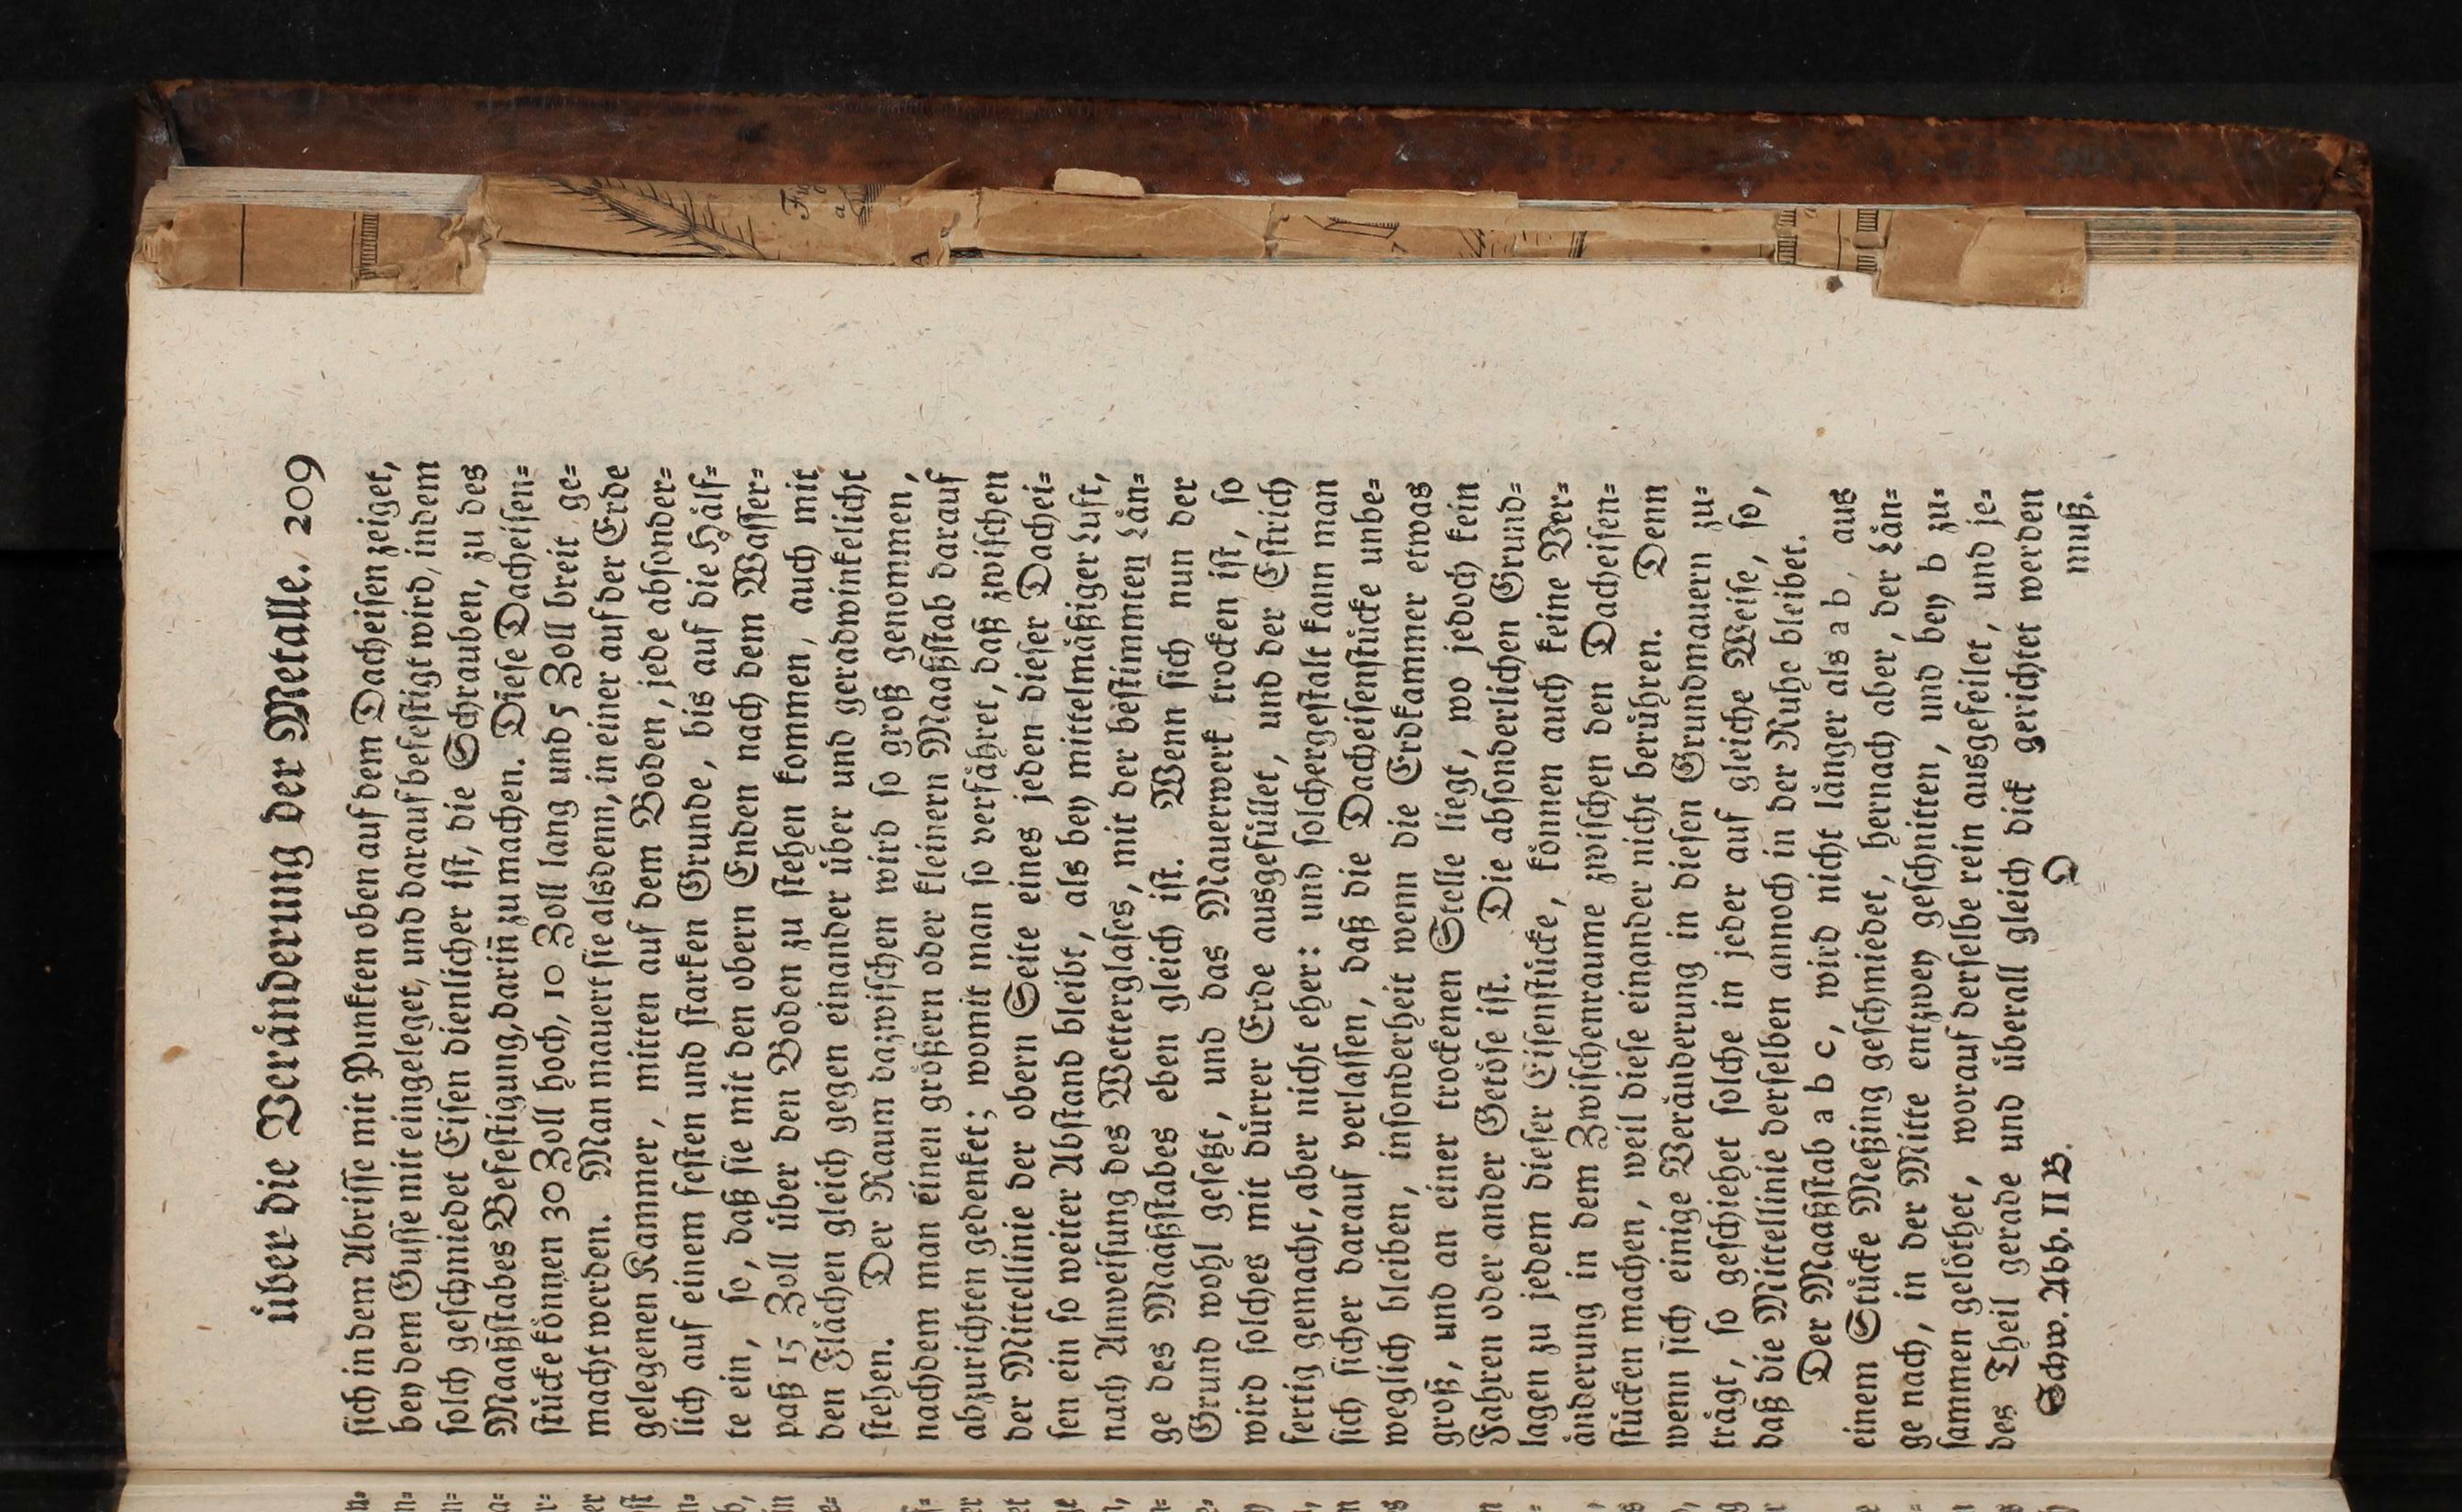 über die Veränderung der Metalle. 209
sich in dem Abrisse mit Punkten oben auf dem Dacheisen zeiget,
bey dem Gusse mit eingeleget, und darauf befestigt wird, indem
solch geschmiedet Eisen dienlicher ist, die Schrauben, zu des
Maaßstabes Befestigung, darin̄ zu machen. Diese Dacheisen=
stücke können 30 Zoll hoch, 10 Zoll lang und 5 Zoll breit ge=
macht werden. Man mauert sie alsdenn, in einer auf der Erde
gelegenen Kammer, mitten auf dem Boden, jede absonder=
lich auf einem festen und starken Grunde, bis auf die Hälf=
te ein, so, daß sie mit den obern Enden nach dem Wasser=
paß 15 Zoll über den Boden zu stehen kommen, auch mit
den Flächen gleich gegen einander über und geradwinkelicht
stehen. Der Raum dazwischen wird so groß genommen,
nachdem man einen größern oder kleinern Maaßstab darauf
abzurichten gedenket; womit man so verfähret, daß zwischen
der Mittellinie der obern Seite eines jeden dieser Dachei=
sen ein so weiter Abstand bleibt, als bey mittelmäßiger Luft,
nach Anweisung des Wetterglases, mit der bestimmten Län=
ge des Maaßstabes eben gleich ist. Wenn sich nun der
Grund wohl gesetzt, und das Mauerwerk trocken ist, so
wird solches mit dürrer Erde ausgefüllet, und der Estrich
fertig gemacht, aber nicht eher: und solchergestalt kann man
sich sicher darauf verlassen, daß die Dacheisenstücke unbe=
weglich bleiben, insonderheit wenn die Erdkammer etwas
groß, und an einer trockenen Stelle liegt, wo jedoch kein
Fahren oder ander Getöse ist. Die absonderlichen Grund=
lagen zu jedem dieser Eisenstücke, können auch keine Ver=
änderung in dem Zwischenraume zwischen den Dacheisen=
stücken machen, weil diese einander nicht berühren. Denn
wenn sich einige Veränderung in diesen Grundmauern zu=
trägt, so geschiehet solche in jeder auf gleiche Weise, so,
daß die Mittellinie derselben annoch in der Ruhe bleibet.
Der Maaßstab a b c, wird nicht länger als a b, aus
einem Stücke Meßing geschmiedet, hernach aber, der Län=
ge nach, in der Mitte entzwey geschnitten, und bey b zu=
sammen gelöthet, worauf derselbe rein ausgefeilet, und je=
des Theil gerade und überall gleich dick gerichtet werden
Schw. Abh. II B. D muß.